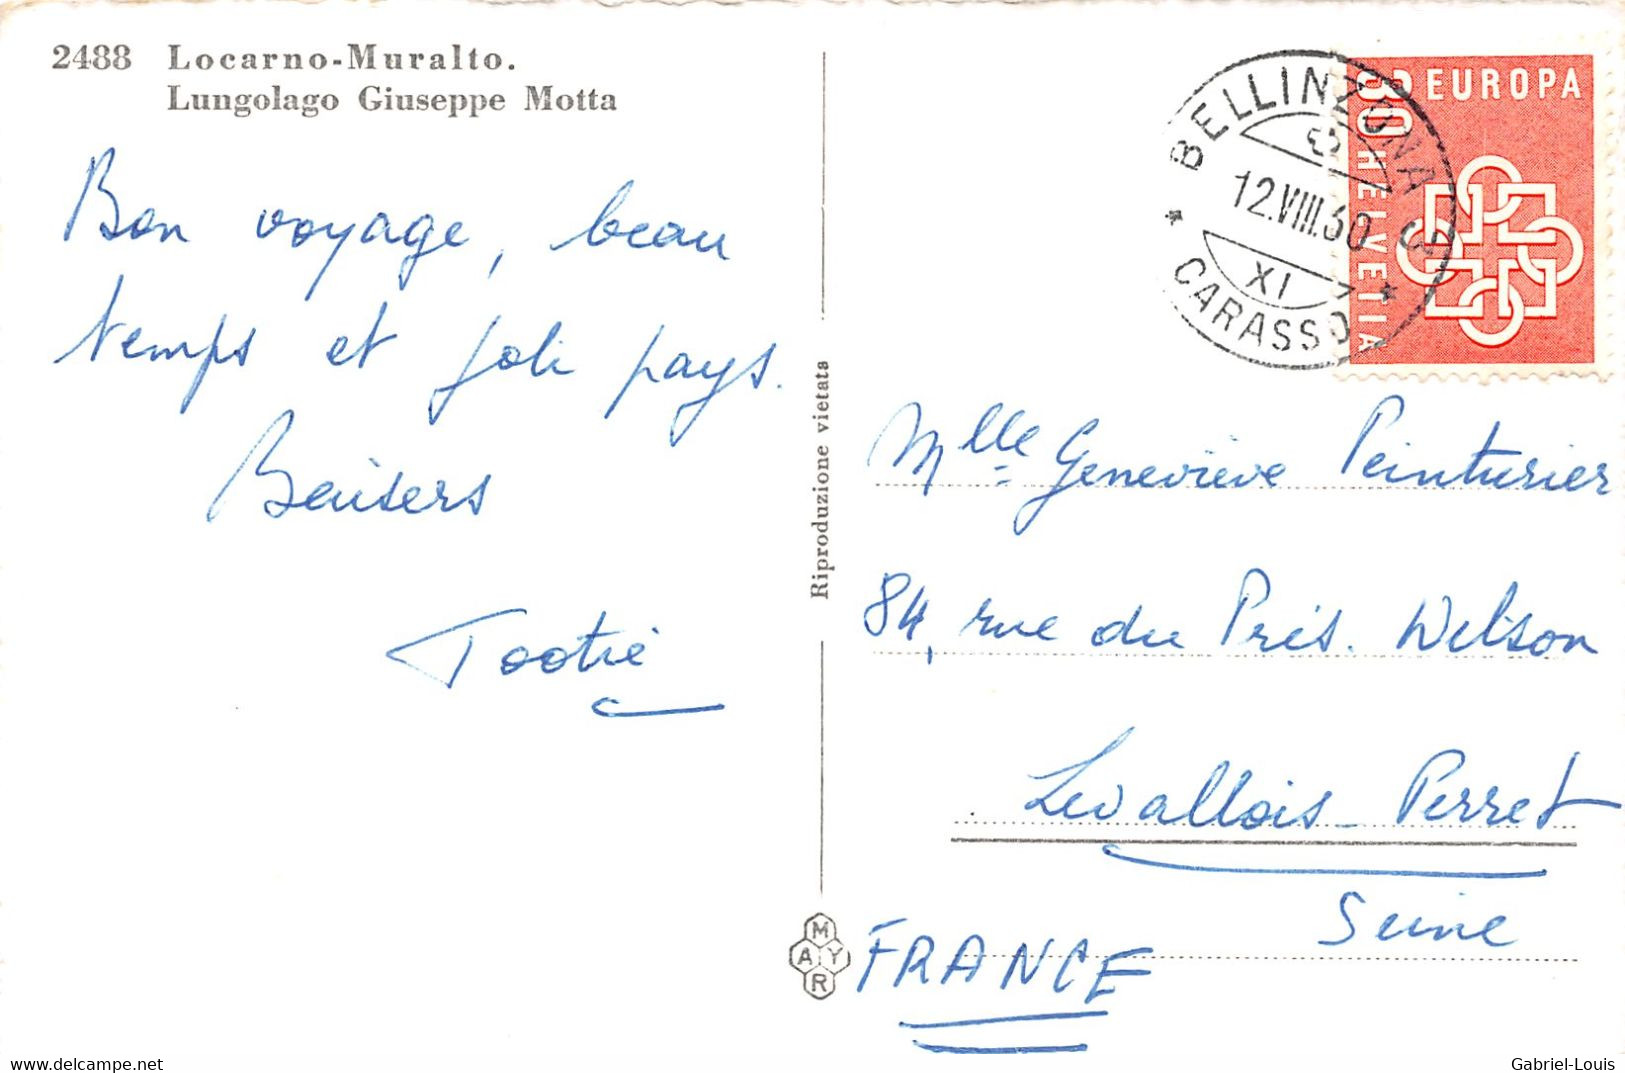 2488 Locarno-Muralto.
Lungolago Giuseppe Motta
Bon voyage, beau
temps et joli pays.
Baisers
Tootie
Riproduzione vietata
MAYR
BELLINZONA 3
12.VIII.60
XI
CARASSO
30 EUROPA
HELVETIA
Mlle Geneviève Peinturier
84, rue du Prés. Wilson
Levallois-Perret
Seine
FRANCE
www.delcampe.net
Gabriel-Louis